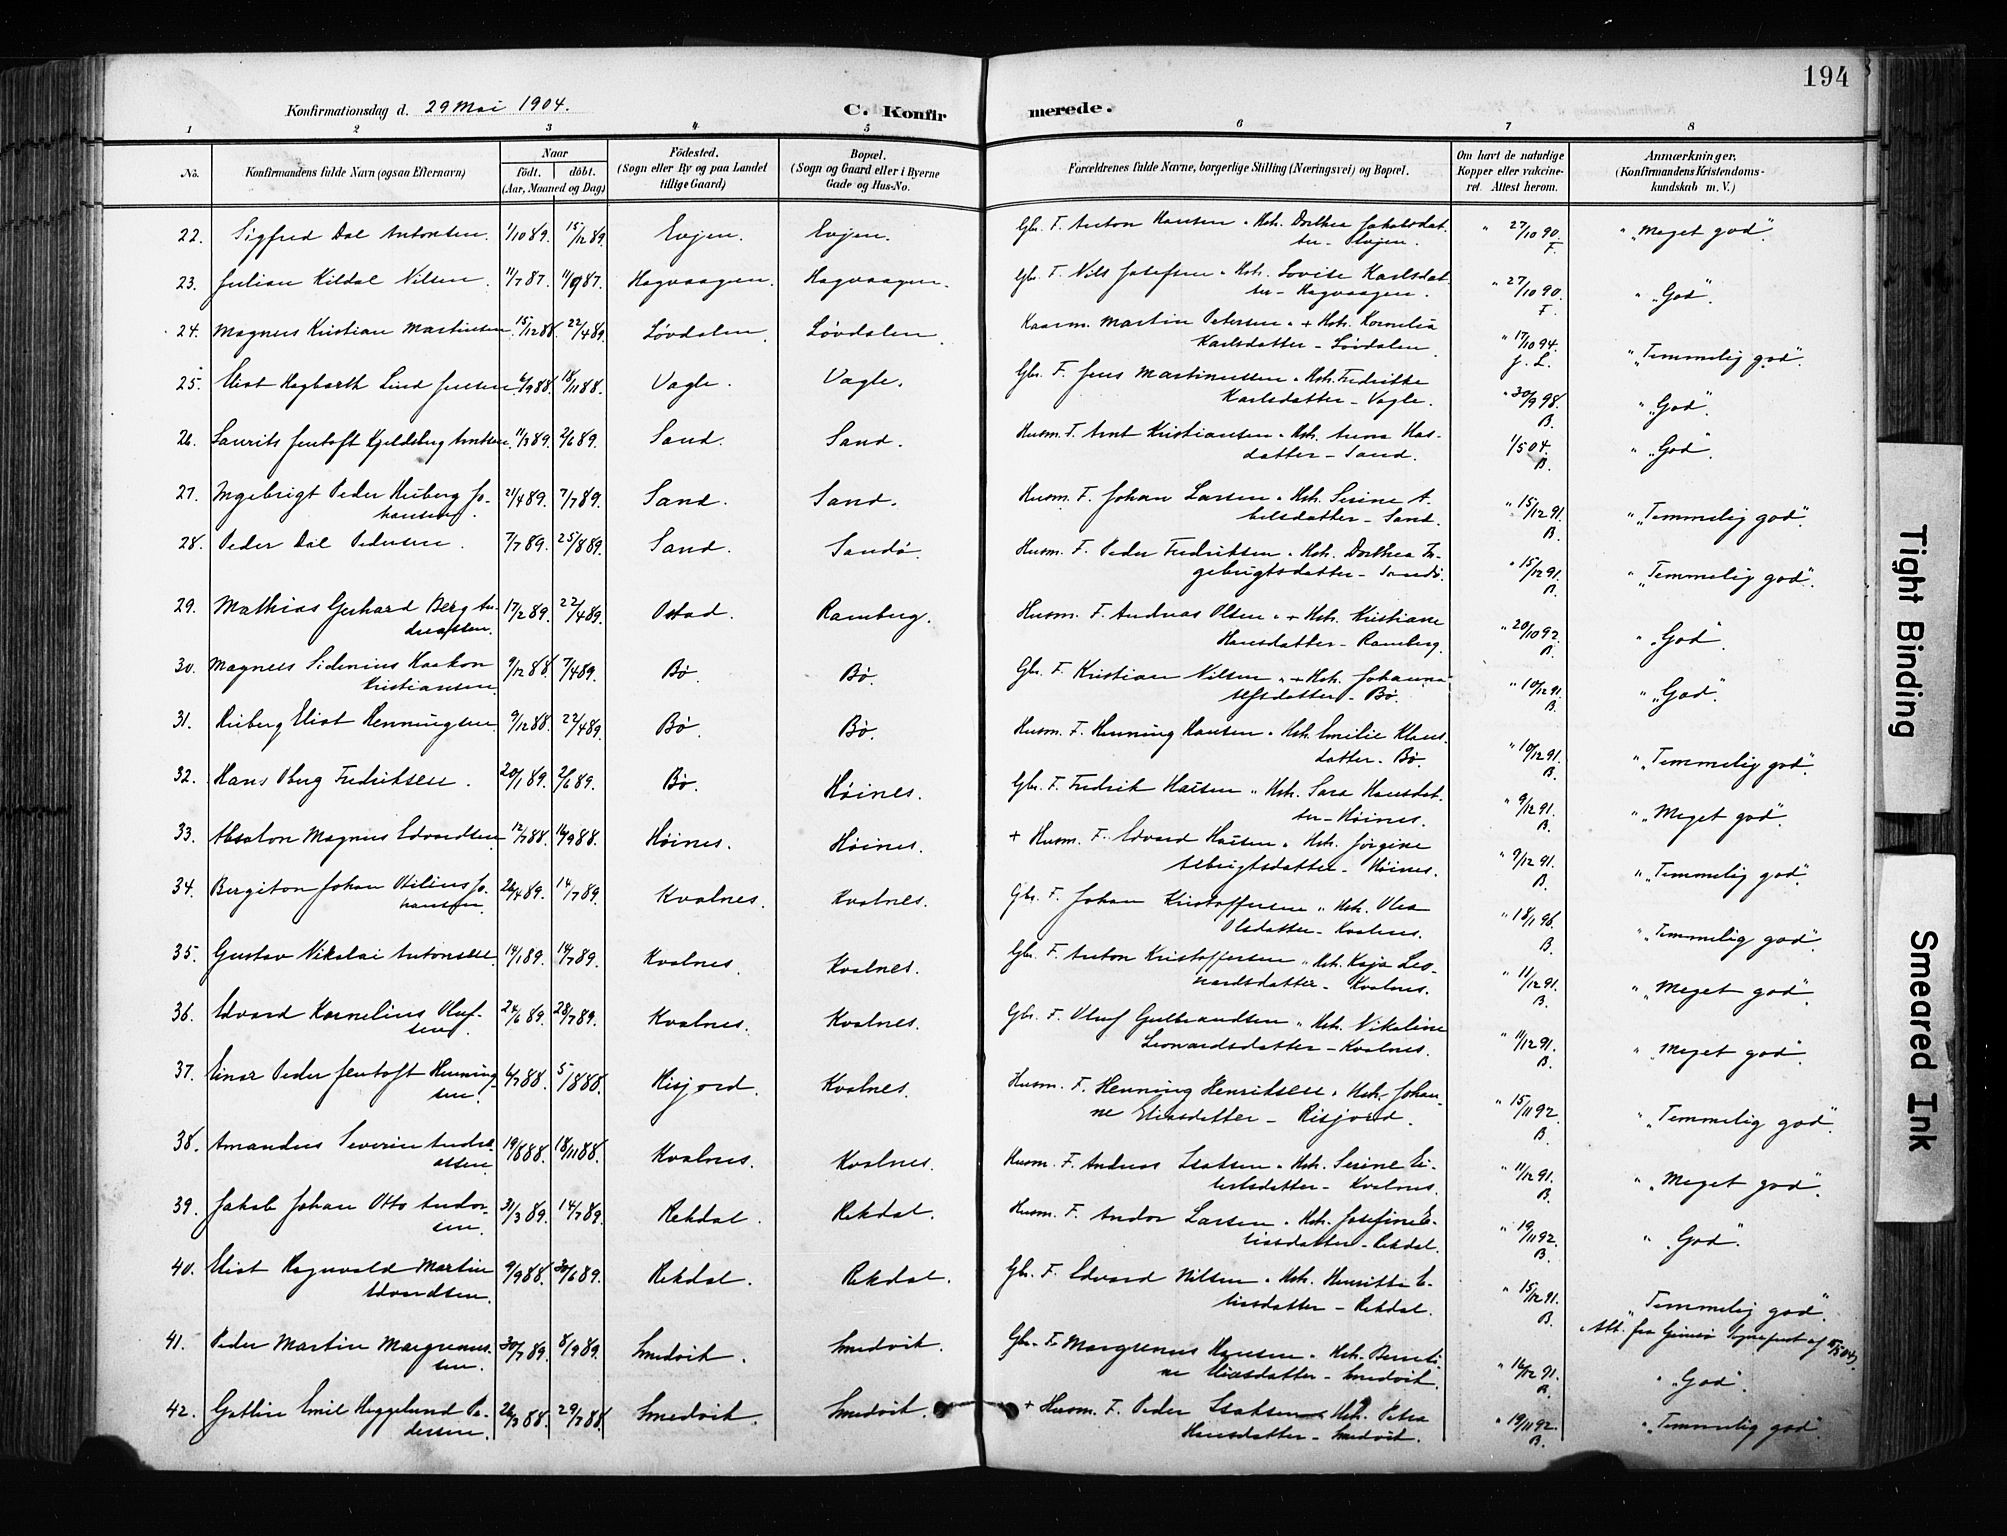 194
Konfirmationsdag d. 29 Mai 1904.
C. Konfir
merede.
1 2 3 4 5 6 7 8
No.
Konfirmandens fulde Navn (ogsaa Efternavn)
Naar
født. døbt.
(Aar, Maaned og Dag)
Fødested.
(Sogn eller By og paa Landet
tillige Gaard)
Bopæl.
(Sogn og Gaard eller i Byerne
Gade og Hus-No.
Forældrenes fulde Navne, borgerlige Stilling (Næringsvei) og Bopæl.
Om havt de naturlige
Kopper eller vakcine-
ret. Attest herom.
Anmærkninger.
(Konfirmandens Kristendoms-
kundskab m. V.)
22. Sigfred Dal Antonsen. 1/10 89. 15/12 89. Evjen. Evjen. Gbr. F. Anton Hansen. Hstr. Dorthea Jakobsdat-
ter - Evjen. " 27/10 90. F. " "Meget god".
23. Julian Kildal Nilsen. 11/7 87. 11/9 87. Hagvaagen. Hagvaagen. Gbr. F. Nils Josefsen. Hstr. Lovise Karlsdat-
ter - Hagvaagen. " 27/10 90. F. " "God".
24. Magnus Kristian Martinsen. 15/12 88. 22/4 89. Løvdalen. Løvdalen. Kaarm. Martin Petersen. + Hstr. Kornelia
Karlsdatter - Løvdalen. " 17/10 94. J. L. " "Temmelig god".
25. Eliot Hagbarth Lind Jensen. 6/9 88. 18/11 88. Vagle. Vagle. Gbr. F. Jens Martinussen. Hstr. Fredrikke
Karlsdatter - Vagle. " 30/9 98. B. " "God".
26. Laurits Jentoft Kjeldsberg Arntsen. 11/3 89. 2/6 89. Sand. Sand. Husm. F. Arnt Kristiansen. Hstr. Anna Has-
datter - Sand. 1/5 04. B. " "God".
27. Ingebrigt Peder Hiiberg Jo-
hansen. 21/4 89. 7/7 89. Sand. Sand. Husm. F. Johan Larsen. Hstr. Serine A-
belsdatter - Sand. " 15/12 91. B. " "Temmelig god".
28. Peder Dal Pedersen. 7/7 89. 25/8 89. Sand. Sandø. Husm. F. Peder Fredriksen. Hstr. Dorthea In-
gebrigtsdatter - Sandø. " 15/12 91. B. " "Temmelig god".
29. Mathias Gerhard Berg An-
dreassen. 17/2 89. 22/4 89. Ostad. Ramberg. Husm. F. Andreas Olsen. + Hstr. Kristiane
Hansdatter - Ramberg. " 20/10 92. B. " "God".
30. Magnus Sidenius Haakon
Kristiansen. 9/12 88. 7/4 89. Bø. Bø. Gbr. F. Kristian Nilsen. + Hstr. Johanna
Ulfsdatter - Bø. " 10/12 91. B. " "God".
31. Hiiberg Eliot Henningsen. 9/12 88. 22/4 89. Bø. Bø. Husm. F. Henning Hansen. Hstr. Emilie Klaus-
datter - Bø. " 10/12 91. B. " "Temmelig god".
32. Hans Oberg Fredriksen. 20/1 89. 2/6 89. Bø. Høines. Gbr. F. Fredrik Hansen " Hstr. Sara Hansdat-
ter - Høines. " 9/12 91. B. " "Meget god".
33. Absalon Magnus Edvardsen. 12/7 88. 16/9 88. Høines. Høines. + Husm. F. Edvard Hansen. Hstr. Jørgine
Albrigtsdatter - Høines. " 9/12 91. B. " "Temmelig god".
34. Bergiton Johan Otilius Jo-
hansen. 26/4 89. 14/7 89. Kvalnes. Kvalnes. Gbr. F. Johan Kristoffersen " Hstr. Olea
Olsdatter - Kvalnes. " 18/1 96. B. " "Temmelig god".
35. Gustav Nikolai Antonsen. 14/1 89. 14/7 89. Kvalnes. Kvalnes. Gbr. F. Anton Kristoffersen " Hstr. Kaja Leo-
nardsdatter - Kvalnes. " 11/12 91. B. " "Meget god".
36. Edvard Kornelius Oluf-
sen. 24/6 89. 28/7 89. Kvalnes. Kvalnes. Gbr. F. Oluf Gulbrandsen " Hstr. Nikoline
Leonardsdatter - Kvalnes. " 11/12 91. B. " "Meget god".
37. Einar Peder Jentoft Henning-
sen. 6/7 88. 5/8 88. Risjord. Kvalnes. Husm. F. Henning Henriksen. Hstr. Johan-
ne Eliasdatter - Risjord. " 15/11 92. B. " "Temmelig god".
38. Amandus Severin Andre-
assen. 19/8 88. 18/11 88. Kvalnes. Kvalnes. Husm. F. Andreas Isaksen. Hstr. Serine
- Kvalnes. " 11/12 91. B. " "Meget god".
39. Jakob Johan Otto Andor-
sen. 31/3 89. 14/7 89. Rekdal. Rekdal. Husm. F. Andor Larsen. Hstr. Josefine E-
liasdatter - Rekdal. " 19/11 92. B. " "God".
40. Eliot Ragnvald Martin
Edvardsen. 9/9 88. 30/6 89. Rekdal. Rekdal. Gbr. F. Edvard Nilsen. Hstr. Henritte E-
liasdatter - Rekdal. " 15/12 91. B. " "Temmelig god".
41. Peder Martin Margrenus-
sen. 30/7 89. 8/9 89. Smedvik. Smedvik. Gbr. F. Margrenus Hansen. Hstr. Benti-
ne Eliasdatter - Smedvik. " 16/12 91. B. Att. fra Gimsø Sogneprest af 11/5 04.
" "God".
42. Gotlin Emil Heggelund Pe-
dersen. 26/3 88. 29/7 88. Smedvik. Smedvik. + Husm. F. Peder Isaksen. Hstr. Petra
Hansdatter - Smedvik. " 19/11 92. B. " "Temmelig god".
Tight Binding
Smeared Ink